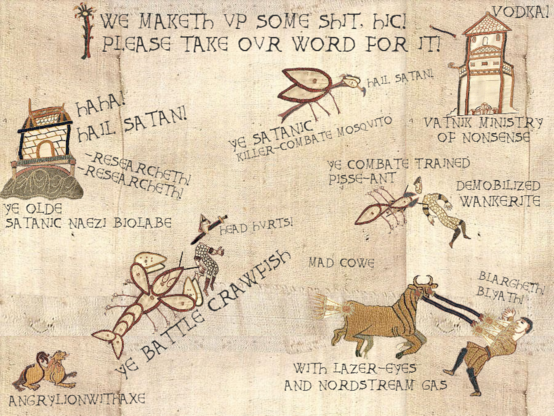 WE MAKETH VP SOME SHIT, HIC!
PLEASE TAKE OVR WORD FOR IT!
VODKA!
VATNIK MINISTRY
OF NONSENSE
HAIL SATAN!
YE SATANIC
KILLER-COMBATE MOSQVITO
HAHA!
HAIL SATAN!
~RESEARCHETH!
~RESEARCHETH!
YE OLDE
SATANIC NAEZI BIOLABE
YE COMBATE TRAINED
PISSE-ANT
DEMOBILIZED
WANKERITE
HEAD HVRTS!
YE BATTLE CRAWFISH
MAD COWE
BLARGHETH!
BLYATH!
WITH LAZER-EYES
AND NORDSTREAM GAS
ANGRYLIONWITHAXE